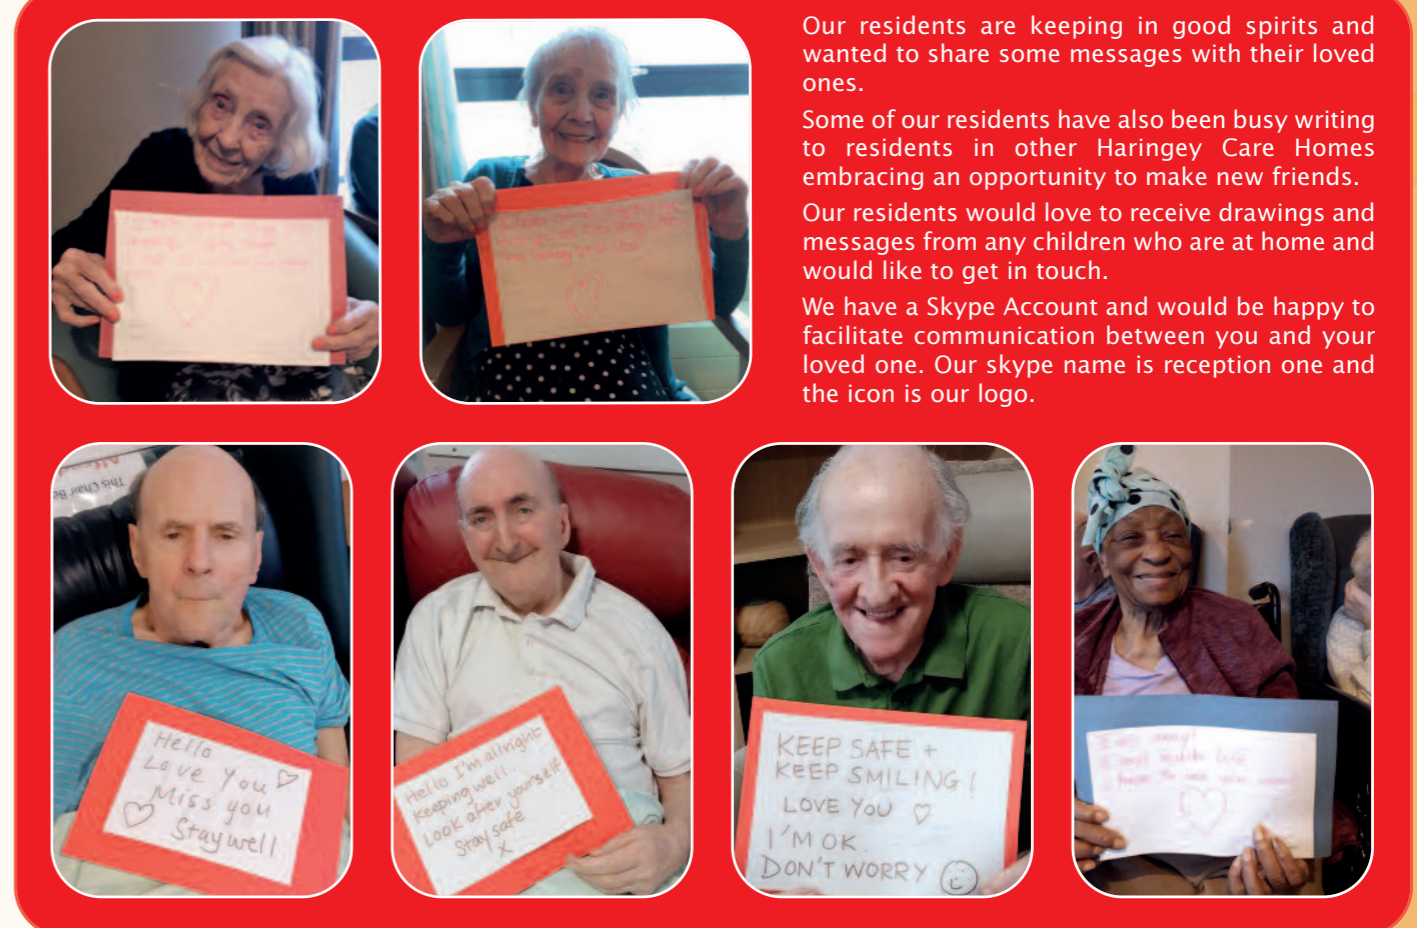 Our residents are keeping in good spirits and
wanted to share some messages with their loved
ones.
Some of our residents have also been busy writing
to residents in other Haringey Care Homes
embracing an opportunity to make new friends.
Our residents would love to receive drawings and
messages from any children who are at home and
would like to get in touch.
We have a Skype Account and would be happy to
facilitate communication between you and your
loved one. Our skype name is reception one and
the icon is our logo.
This Chair Be
Hello
Love You
Miss you
Stay well
Hello I'm allright
Keeping well.
Look after yourself
Stay safe
X
KEEP SAFE +
KEEP SMILING!
LOVE YOU
I'M OK.
DON'T WORRY
much love
hope to see you soon